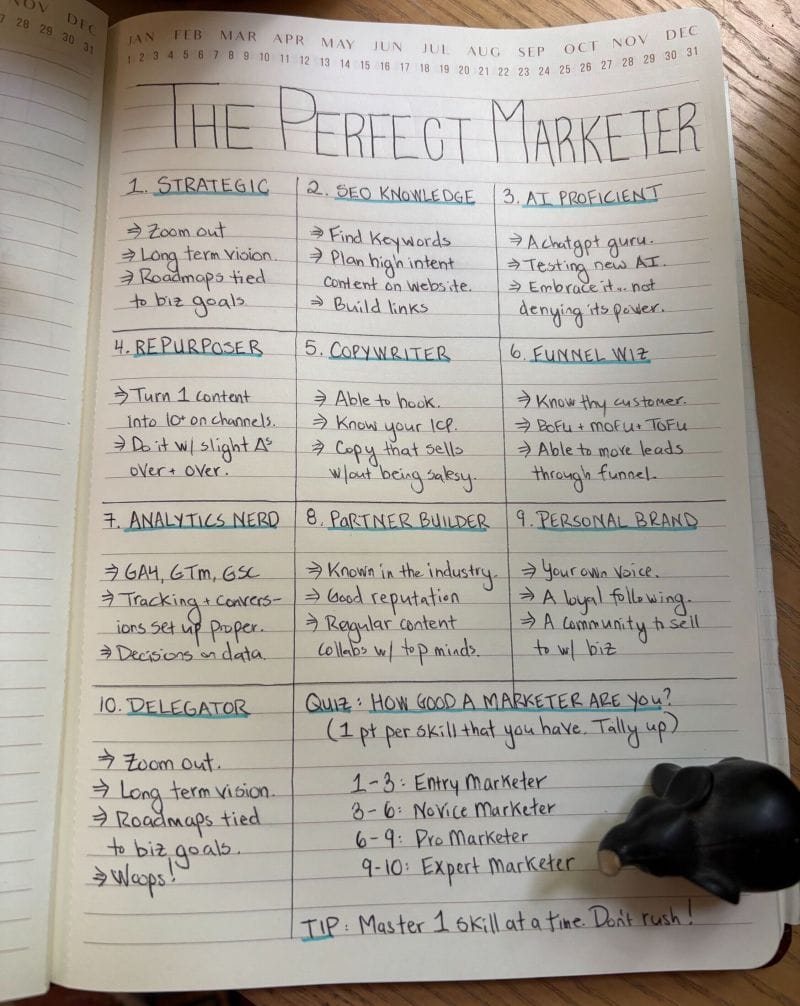 NOV DEC
7 28 29 30 31
JAN FEB MAR APR MAY JUN JUL AUG SEP OCT NOV DEC
1 2 3 4 5 6 7 8 9 10 11 12 13 14 15 16 17 18 19 20 21 22 23 24 25 26 27 28 29 30 31
THE PERFECT MARKETER
1. STRATEGIC
⇒ Zoom out
⇒ Long term vision.
⇒ Roadmaps tied
to biz goals
2. SEO KNOWLEDGE
⇒ Find Keywords
⇒ Plan high intent
content on website.
⇒ Build links
3. AI PROFICIENT
⇒ A chatgpt guru.
⇒ Testing new AI.
⇒ Embrace it... not
denying its power.
4. REPURPOSER
⇒ Turn 1 content
into 10+ on channels.
⇒ Do it w/ slight Δs
over + over.
5. COPYWRITER
⇒ Able to hook.
⇒ Know your ICP.
⇒ Copy that sells
w/out being salesy.
6. FUNNEL WIZ
⇒ Know thy customer.
⇒ BOFU + MOFU + TOFU
⇒ Able to move leads
through funnel.
7. ANALYTICS NERD
⇒ GA4, GTM, GSC
⇒ Tracking + convers-
ions set up proper.
⇒ Decisions on data.
8. PARTNER BUILDER
⇒ Known in the industry.
⇒ Good reputation
⇒ Regular content
collabs w/ top minds.
9. PERSONAL BRAND
⇒ Your own voice.
⇒ A loyal following.
⇒ A community to sell
to w/ biz
10. DELEGATOR
⇒ Zoom out.
⇒ Long term vision.
⇒ Roadmaps tied
to biz goals.
⇒ Woops!
QUIZ: HOW GOOD A MARKETER ARE YOU?
(1 pt per skill that you have. Tally up)
1-3: Entry Marketer
3-6: Novice Marketer
6-9: Pro Marketer
9-10: Expert Marketer
TIP: Master 1 skill at a time. Don't rush!